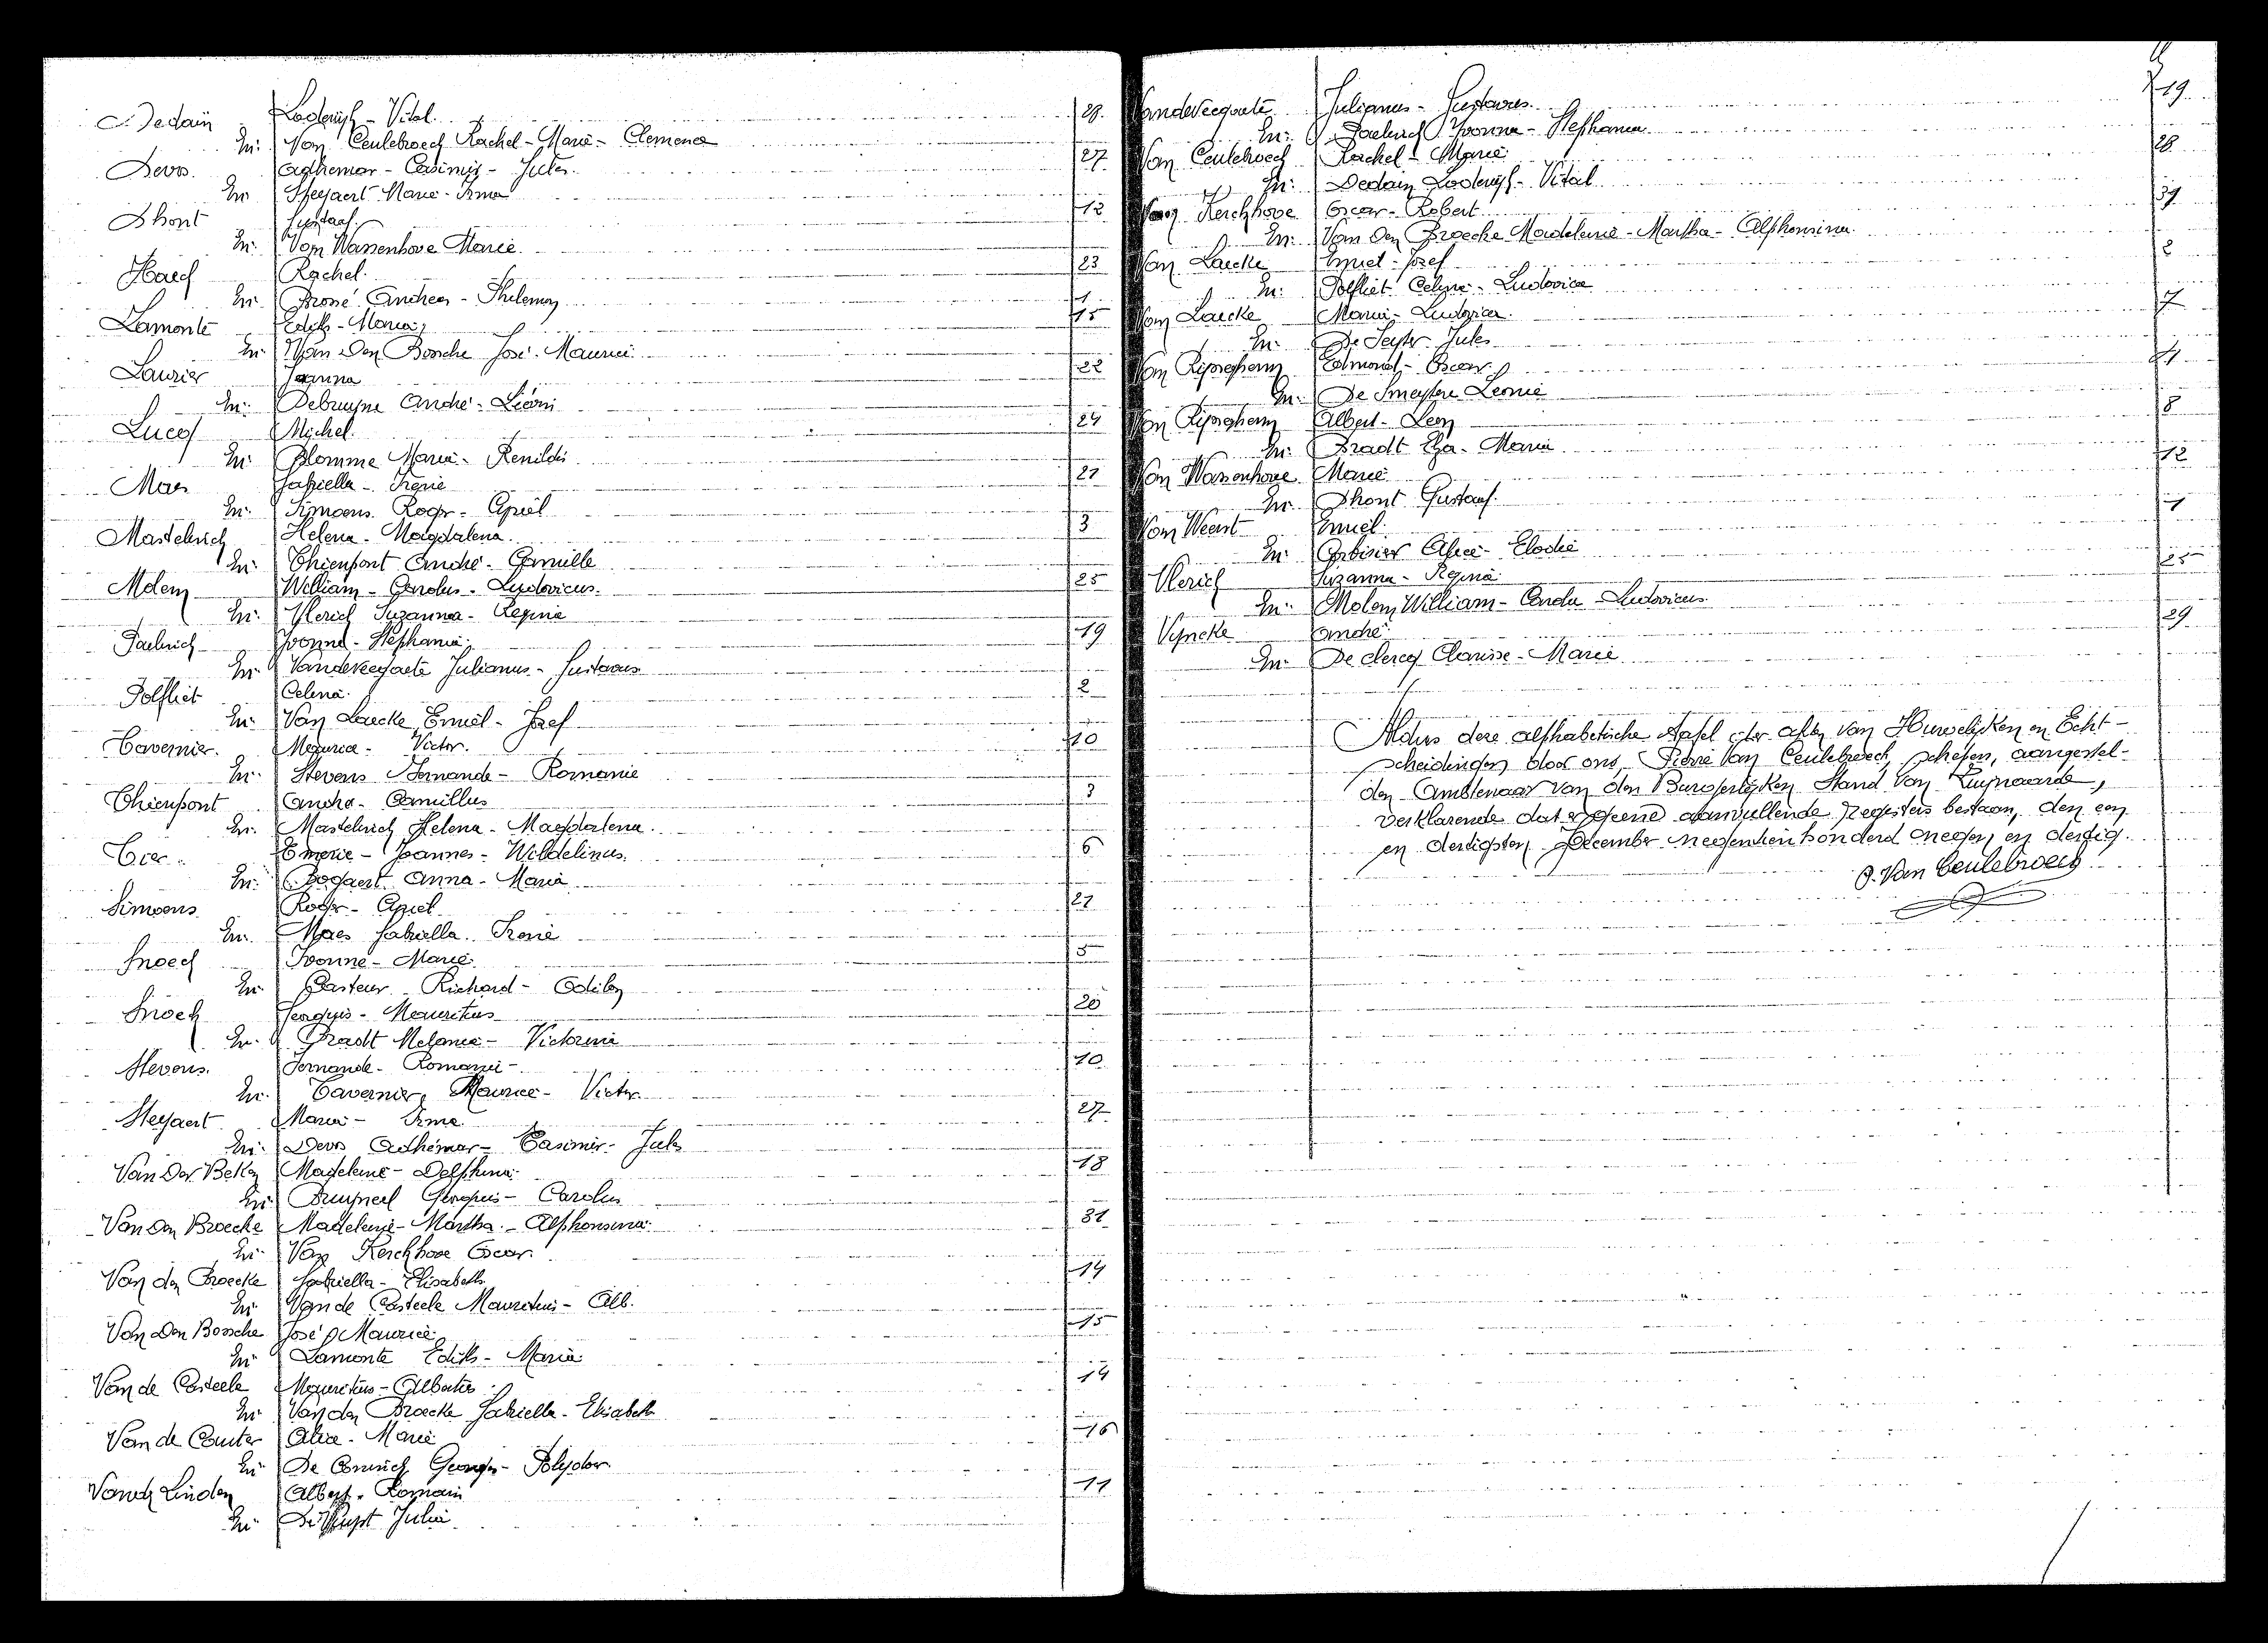 Dedain Lodewijk - Vital. 28
En: Van Ceulebroeck Rachel - Marie - Clemence
Devos. Adhemar - Casimir - Jules. 27
En Steyaert Marie - Irma
Dhont Gustaaf. 12
En: Van Wassenhove Marie.
Haeck Rachel. 23
En: Andreas - Philemon
Lamonte Edith - Maria, 15
En: Van Den Bossche José - Maurice
Laurier Joanna 22
En: Debruyne André - Léon
Lucq Michel. 24
En: Blomme Maria - Renildis
Maes Gabriella - Irenè 21
En: Simoens Roger - Cyriel
Mastelinck Helena - Magdalena. 3
En: Thienpont André - Camille
Molem William - Carolus - Ludovicus. 25
En: Vlerick Suzanna - Regina
Paelinck Yvonna - Stephania. 19
En: Vandeveegaete Julianus - Gustavus
Polfliet Celina. 2
En: Van Laecke, Emiel - Jozef
Tavernier. Maurice - Victor. 10
En: Stevens Fernande - Romanie
Thienpont André - Camillus 3
En: Mastelinck Helena - Magdalena.
Emerie - Joannes - 6
En: Bogaert Anna - Maria
Simoens Roger - Cyriel 21
En: Maes Gabriella - Irenè
Snoeck Ivonne - Marie. 5
En: Pasteur Richard - Odilon
Snoeck Georgius - Mauritius 20
En: Bradt Melanie - Victorine
Stevens. Fernande - Romanie - 10
En: Tavernier, Maurice - Victor.
Steyaert Maria - Irma 27
En: Devos Adhémar - Casimir - Jules
Van Der Beken Magdelene - Delphina 18
En: Carolus
Van Den Broecke Madeleine - Martha - Alphonsina. 31
En: Van Kerckhove Oscar.
Van den Broecke Gabriella - Elisabeth 14
En: Van de Casteele Mauritius - Alb.
Van Den Bossche José Maurice 15
En: Lamonte Edith - Maria
Van de Casteele Mauritius - Albertus 14
En: Van den Broecke Gabriella - Elisabeth
Van de Couter Alice - Marie 16
En: De Coninck Georges - Polydor.
Vander Linden Albert - Romain 11
En: Julia
Vandeveegaete Julianus - Gustavus. 19
En: Paelinck Yvonna - Stephania
Van Ceulebroeck Rachel - Marie. 28
En: Dedain Lodewijk - Vital
Van Kerckhove Oscar - Robert 31
En: Van Den Broecke Madeleine - Martha - Alphonsina
Van Laecke Emiel - Jozef 2
En: Polfliet Celine - Ludovica
Van Laecke Maria - Ludovica. 7
En: Jules
Edmond - Oscar
En: De Smeytere Leonie
Albert - Leon 8
En: Bradt Elza - Maria
Van Wassenhove Marie 12
En: Dhont Gustaaf.
Van Weert Emiel. 1
En: Alice - Elodie
Vlerick Suzanna - Regina 25
En: Molem William - Ludovicus
Vyncke André 29
En: De clercq Clarisse - Marie
Aldus deze alphabetische tafel der akten van Huwelijken en Echt-
scheidingen door ons, Pierre Van Ceulebroeck, schepen, aangestel-
den Ambtenaar van den Burgerlijken Stand van Zwijnaarde,
verklarende dat er geene aanvullende registers bestaan, den een
en dertigsten December negentienhonderd negen en dertig.
P. Van Ceulebroeck